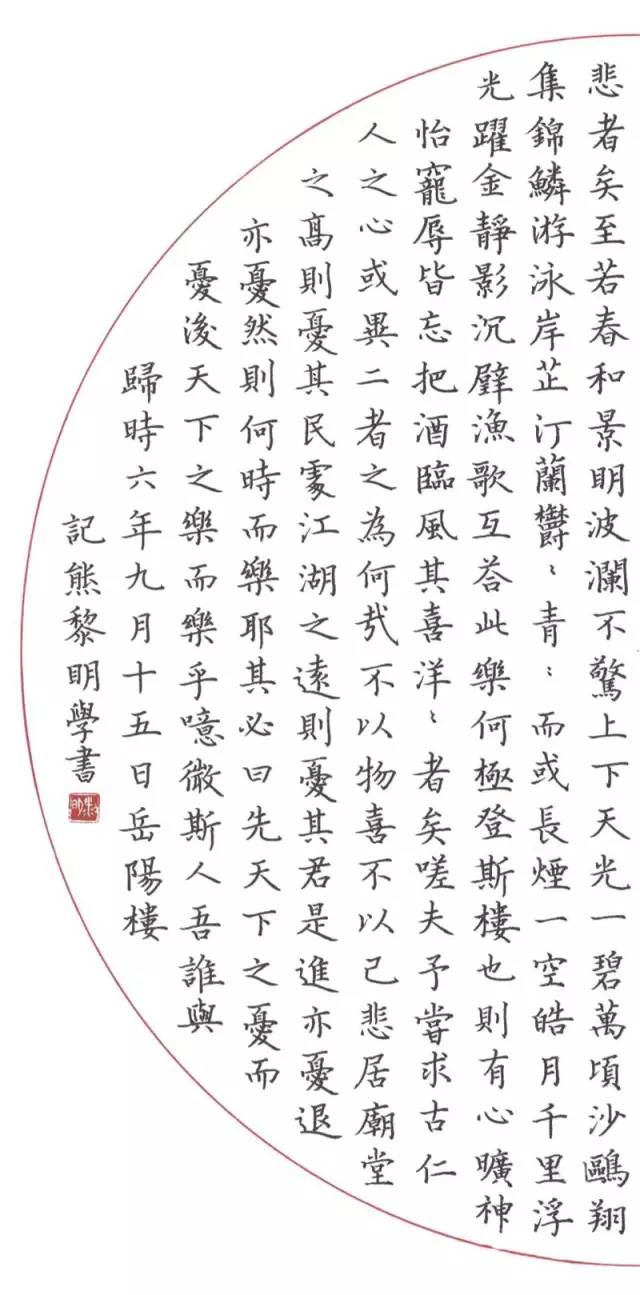 悲者矣至若春和景明波瀾不驚上下天光一碧萬頃沙鷗翔
集錦鱗游泳岸芷汀蘭欝〻青〻而或長煙一空皓月千里浮
光躍金靜影沉璧漁歌互荅此樂何極登斯樓也則有心曠神
怡寵辱皆忘把酒臨風其喜洋〻者矣嗟夫予嘗求古仁
人之心或異二者之為何哉不以物喜不以己悲居廟堂
之高則憂其民處江湖之遠則憂其君是進亦憂退
亦憂然則何時而樂耶其必曰先天下之憂而
憂後天下之樂而樂乎噫微斯人吾誰與
歸時六年九月十五日岳陽樓
記熊黎明學書